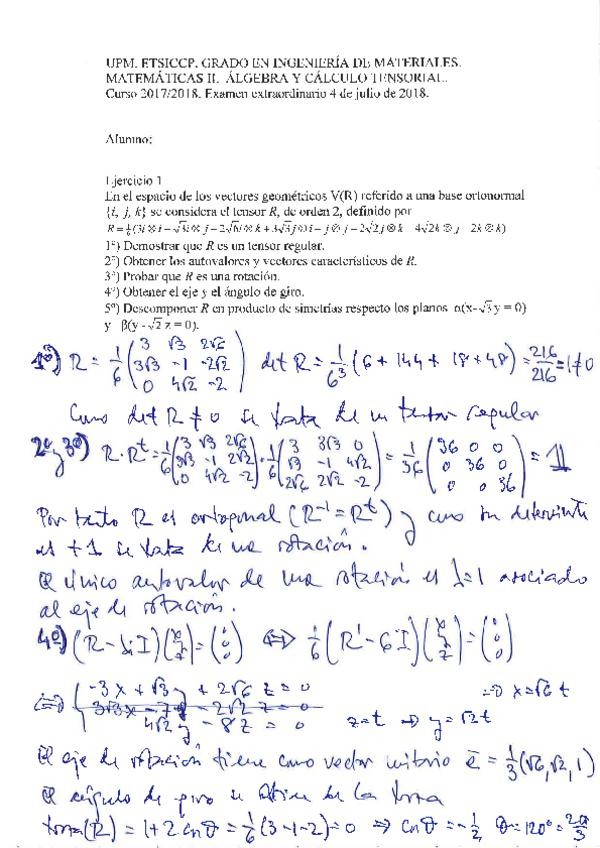 UPM. ETSICCP. GRADO EN INGENIERÍA DE MATERIALES.
MATEMÁTICAS II. ÁLGEBRA Y CÁLCULO TENSORIAL.
Curso 2017/2018. Examen extraordinario 4 de julio de 2018.
Alumno:
Ejercicio 1
En el espacio de los vectores geométricos V(R) referido a una base ortonormal
{i, j, k} se considera el tensor R, de orden 2, definido por
R = 1/6 (3i⊗i − √3i⊗j − 2√6i⊗k + 3√3j⊗i − j⊗j − 2√2j⊗k 4√2k⊗j 2k⊗k)
1º) Demostrar que R es un tensor regular.
2º) Obtener los autovalores y vectores característicos de R.
3º) Probar que R es una rotación.
4º) Obtener el eje y el ángulo de giro.
5º) Descomponer R en producto de simetrías respecto los planos α(x-√3 y = 0)
y β(y -√2 z = 0).
1º) R = 1/6 (3 √3 2√6; 3√3 -1 -2√2; 0 4√2 -2) det R = 1/6³ (6 + 144 + 18 + 48) = 216/216 = 1 ≠ 0
Como det R ≠ 0 se trata de un tensor regular
2º y 3º) R·Rᵗ = 1/6 (3 √3 2√6; 3√3 -1 2√2; 0 4√2 -2) · 1/6 (3 3√3 0; √3 -1 4√2; 2√6 2√2 -2) = 1/36 (36 0 0; 0 36 0; 0 0 36) = 1
Por tanto R es ortogonal (R⁻¹ = Rᵗ) y como su determinante
es +1 se trata de una rotación.
El único autovalor de una rotación es λ=1 asociado
al eje de rotación.
4º) (R - 1·I) (x; y; z) = (0; 0; 0) ⇔ 1/6 (R' - 6I) (x; y; z) = (0; 0; 0)
⇔ { -3x + √3 y + 2√6 z = 0 ⇒ x = √6 t
3√3x - 7y - 2√2 z = 0
4√2 y - 8z = 0 z = t ⇒ y = √2t
El eje de rotación tiene como vector unitario ē = 1/3 (√6, √2, 1)
El ángulo de giro se obtiene de la traza
traza(R) = 1 + 2 cos θ = 1/6 (3 -1 -2) = 0 ⇒ cos θ = -1/2 θ = 120º = 2π/3